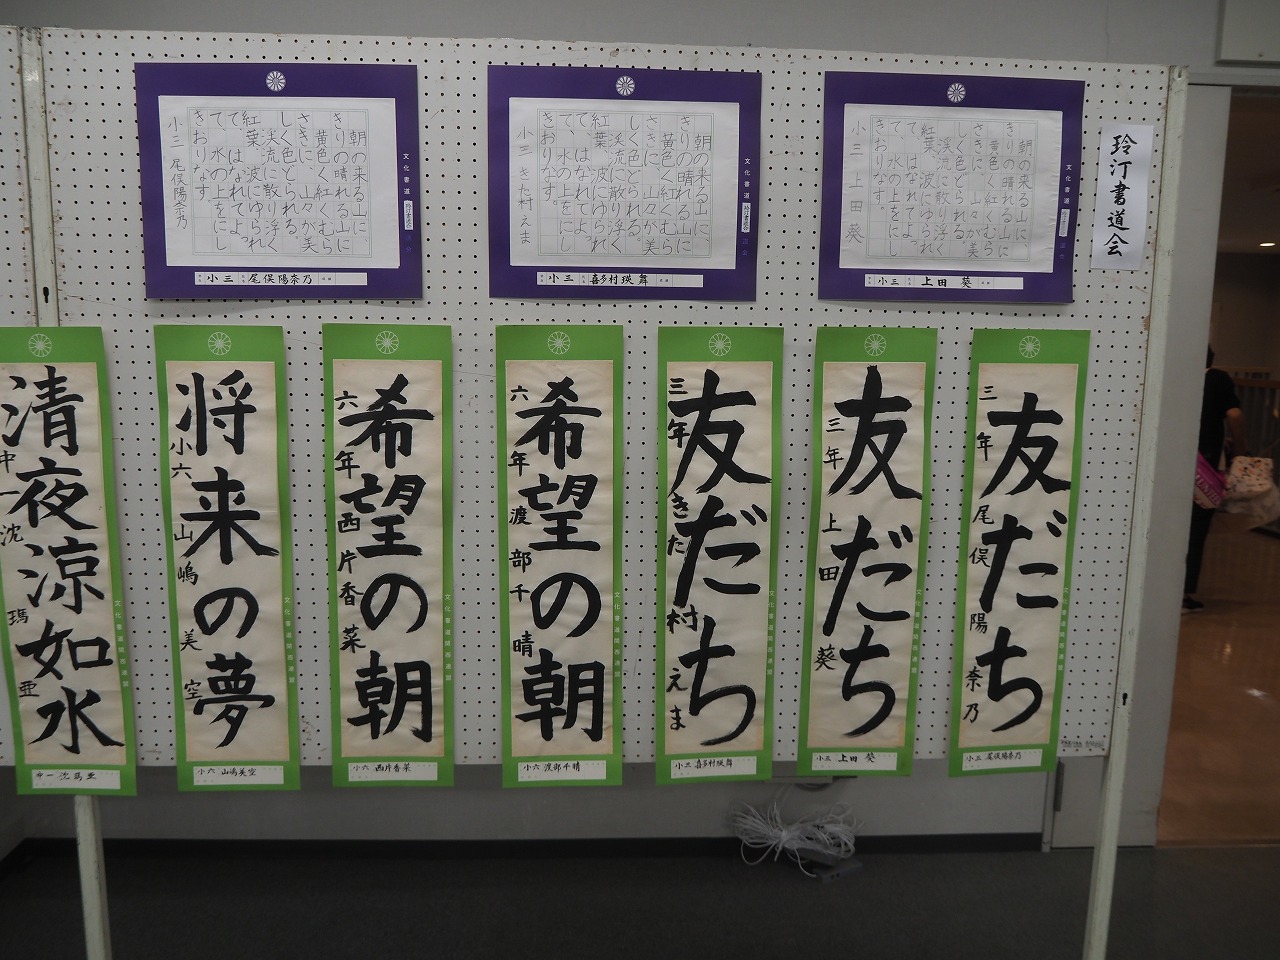 玲汀書道会
朝の来る山に、
きりの晴れる山に
黄色く紅くむら
さきに、山々が美
しく色どられる。
渓流に散り浮く
紅葉、波にゆられ
て、はなれてよっ
て、水の上をにし
きおりなす。
小三 上田葵
文化書道
小三 上田 葵
朝の来る山に、
きりの晴れる山に
黄色く紅くむら
さきに、山々が美
しく色どられる。
渓流に散り浮く
紅葉、波にゆられ
て、はなれてよっ
て、水の上をにし
きおりなす。
小三 きた村えま
文化書道
小三 喜多村瑛舞
朝の来る山に
きりの晴れる山に
黄色く紅くむら
さきに、山々が美
しく色どられる
渓流に散り浮く
紅葉、波にゆられ
て、はなれてよっ
て、水の上をにし
きおりなす。
小三 尾俣陽奈乃
文化書道
小三 尾俣陽奈乃
友だち
三年 尾俣陽奈乃
文化書道関西連盟
小三 尾俣陽奈乃
友だち
三年 上田葵
文化書道関西連盟
小三 上田 葵
友だち
三年 きた村えま
文化書道関西連盟
小三 喜多村瑛舞
希望の朝
六年 渡部千晴
文化書道関西連盟
小六 渡部千晴
希望の朝
六年 西片香菜
文化書道関西連盟
小六 西片香菜
将来の夢
小六 山嶋美空
文化書道関西連盟
小六 山嶋美空
清夜涼如水
中一 沈瑪亜
文化書道関西連盟
中一 沈瑪亜